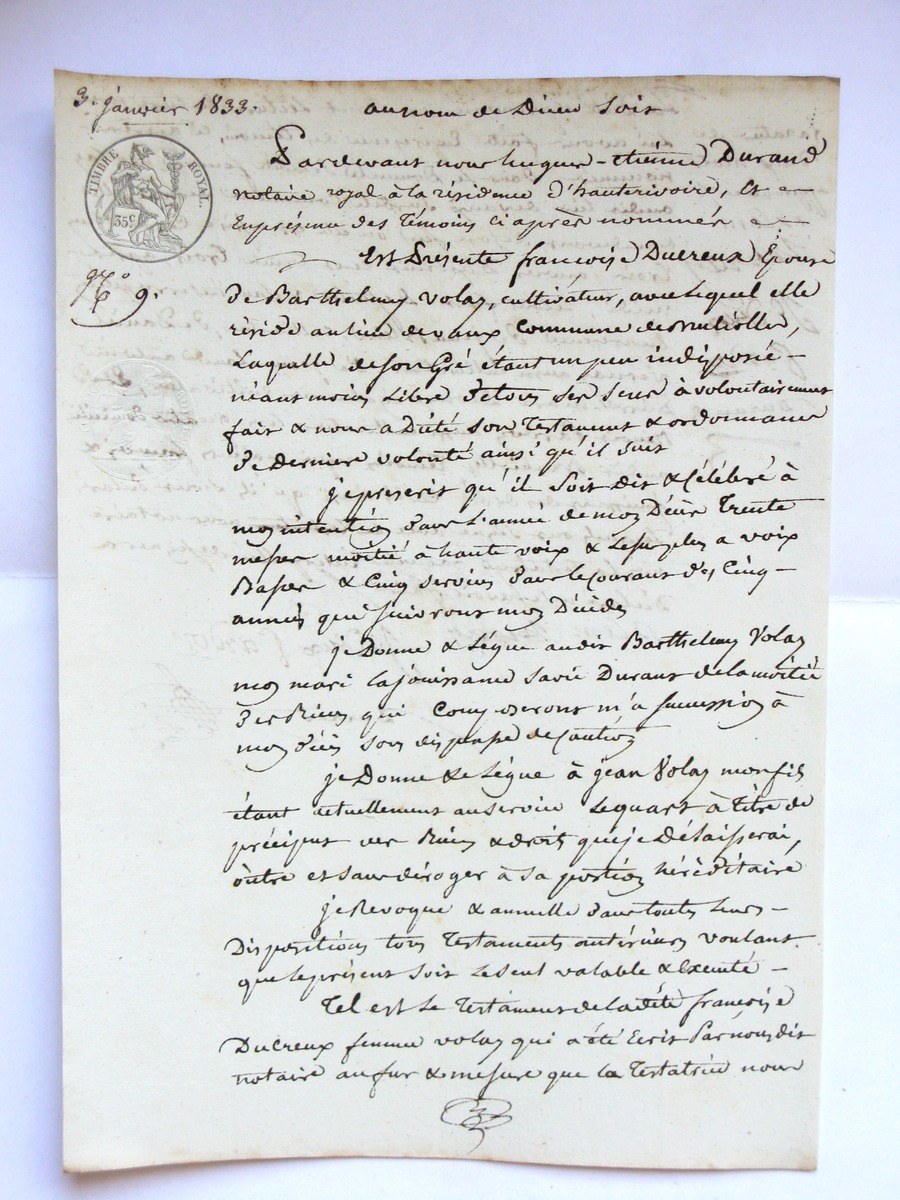 3. janvier 1833.
au nom de Dieu soit
TIMBRE ROYAL.
35c
Pardevant nous hugues-etienne Durand
notaire royal à la résidence d'hauterivoire, Et
Enprésence des Témoins ci après nommés
Est Présente françoise Ducreux Epouse
N° 9.
de Barthelemy Volay, cultivateur, aveclequel elle
réside aulieu devaux commune de
Laquelle deson Gré étant un peu indisposée
néant moins Libre detous ses sens à volontairement
fait & nous a Dicté son Testament & ordonnance
de derniere volonté ainsi qu'il suit
je prescrit qu'il soit dit & Célébré à
mon intention dans L'année de mon Décès Trente
messes moitié à haute voix & Lesurplus a voix
Basse & Cinq services dans lecourant des Cinq
années qui suivront mon Décèds
je Donne & Lègue audit Barthelemy Volay
mon mari lajouissance savie Durant delamoitié
des Biens qui Composeront m'a succession à
mon décès sous dispense decaution
je Donne & Lègue à jean Volay monfils
étant actuellement auservice Lequart à Titre de
préciput des Biens & droits queje Délaisserai,
outre et sans déroger à sa portion héréditaire
je Revoque & annulle dans toutes Leurs
Dispositions tous Testaments antérieurs voulant
que leprésent soit Leseul valable & Exécuté
Tel est Le Testament deladite françoise
Ducreux femme volay qui a été Ecrit Parnousdit
notaire aufur & mesure que la Testatrice nous